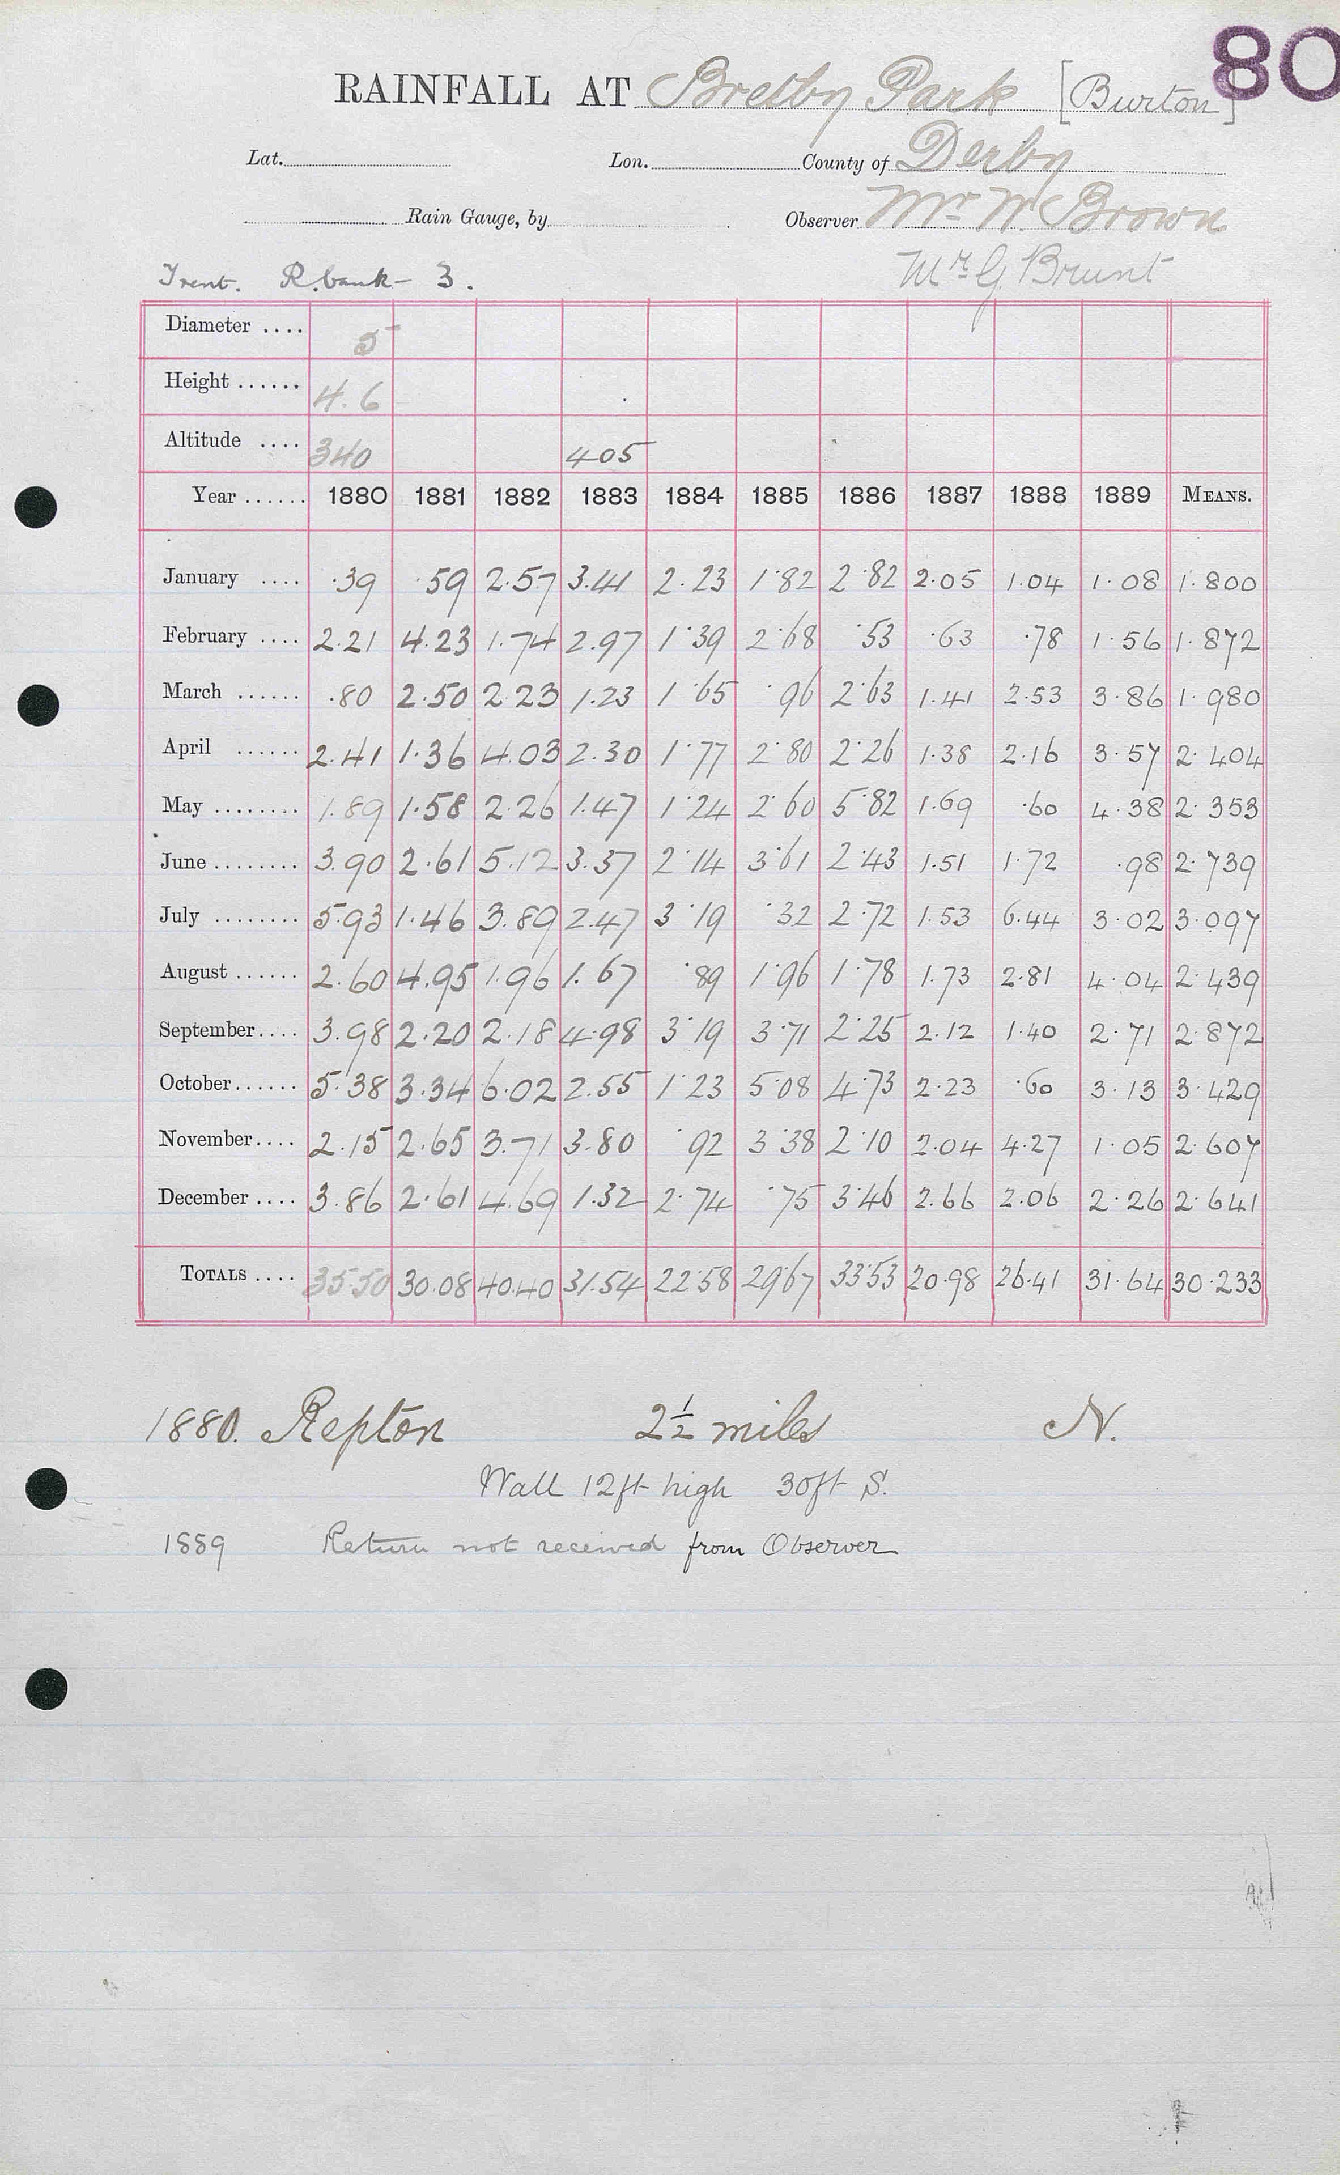 80
RAINFALL AT Bretby Park [Burton]
Lat. Lon. County of Derby
Rain Gauge, by Observer Mr W. Brown
Trent. R. bank - 3. Mr G Brunt
Diameter .... 5
Height ...... 4.6
Altitude .... 340 405
Year ...... 1880 1881 1882 1883 1884 1885 1886 1887 1888 1889 MEANS.
January .... .39 .59 2.57 3.41 2.23 1.82 2.82 2.05 1.04 1.08 1.800
February .... 2.21 4.23 1.74 2.97 1.39 2.68 .53 .63 .78 1.56 1.872
March ...... .80 2.50 2.23 1.23 1.65 .96 2.63 1.41 2.53 3.86 1.980
April ...... 2.41 1.36 4.03 2.30 1.77 2.80 2.26 1.38 2.16 3.57 2.404
May ........ 1.89 1.58 2.26 1.47 1.24 2.60 5.82 1.69 .60 4.38 2.353
June ........ 3.90 2.61 5.12 3.37 2.14 3.61 2.43 1.51 1.72 .98 2.739
July ........ 5.93 1.46 3.89 2.47 3.19 .32 2.72 1.53 6.44 3.02 3.097
August ...... 2.60 4.95 1.96 1.67 .89 1.96 1.78 1.73 2.81 4.04 2.439
September.... 3.98 2.20 2.18 4.98 3.19 3.71 2.25 2.12 1.40 2.71 2.872
October...... 5.38 3.34 6.02 2.55 1.23 5.08 4.73 2.23 .60 3.13 3.429
November.... 2.15 2.65 3.71 3.80 .92 3.38 2.10 2.04 4.27 1.05 2.607
December .... 3.86 2.61 4.69 1.32 2.74 .75 3.46 2.66 2.06 2.26 2.641
TOTALS .... 35.50 30.08 40.40 31.54 22.58 29.67 33.53 20.98 26.41 31.64 30.233
1880. Repton 2½ miles N.
Wall 12ft high 30ft S.
1889 Return not received from Observer